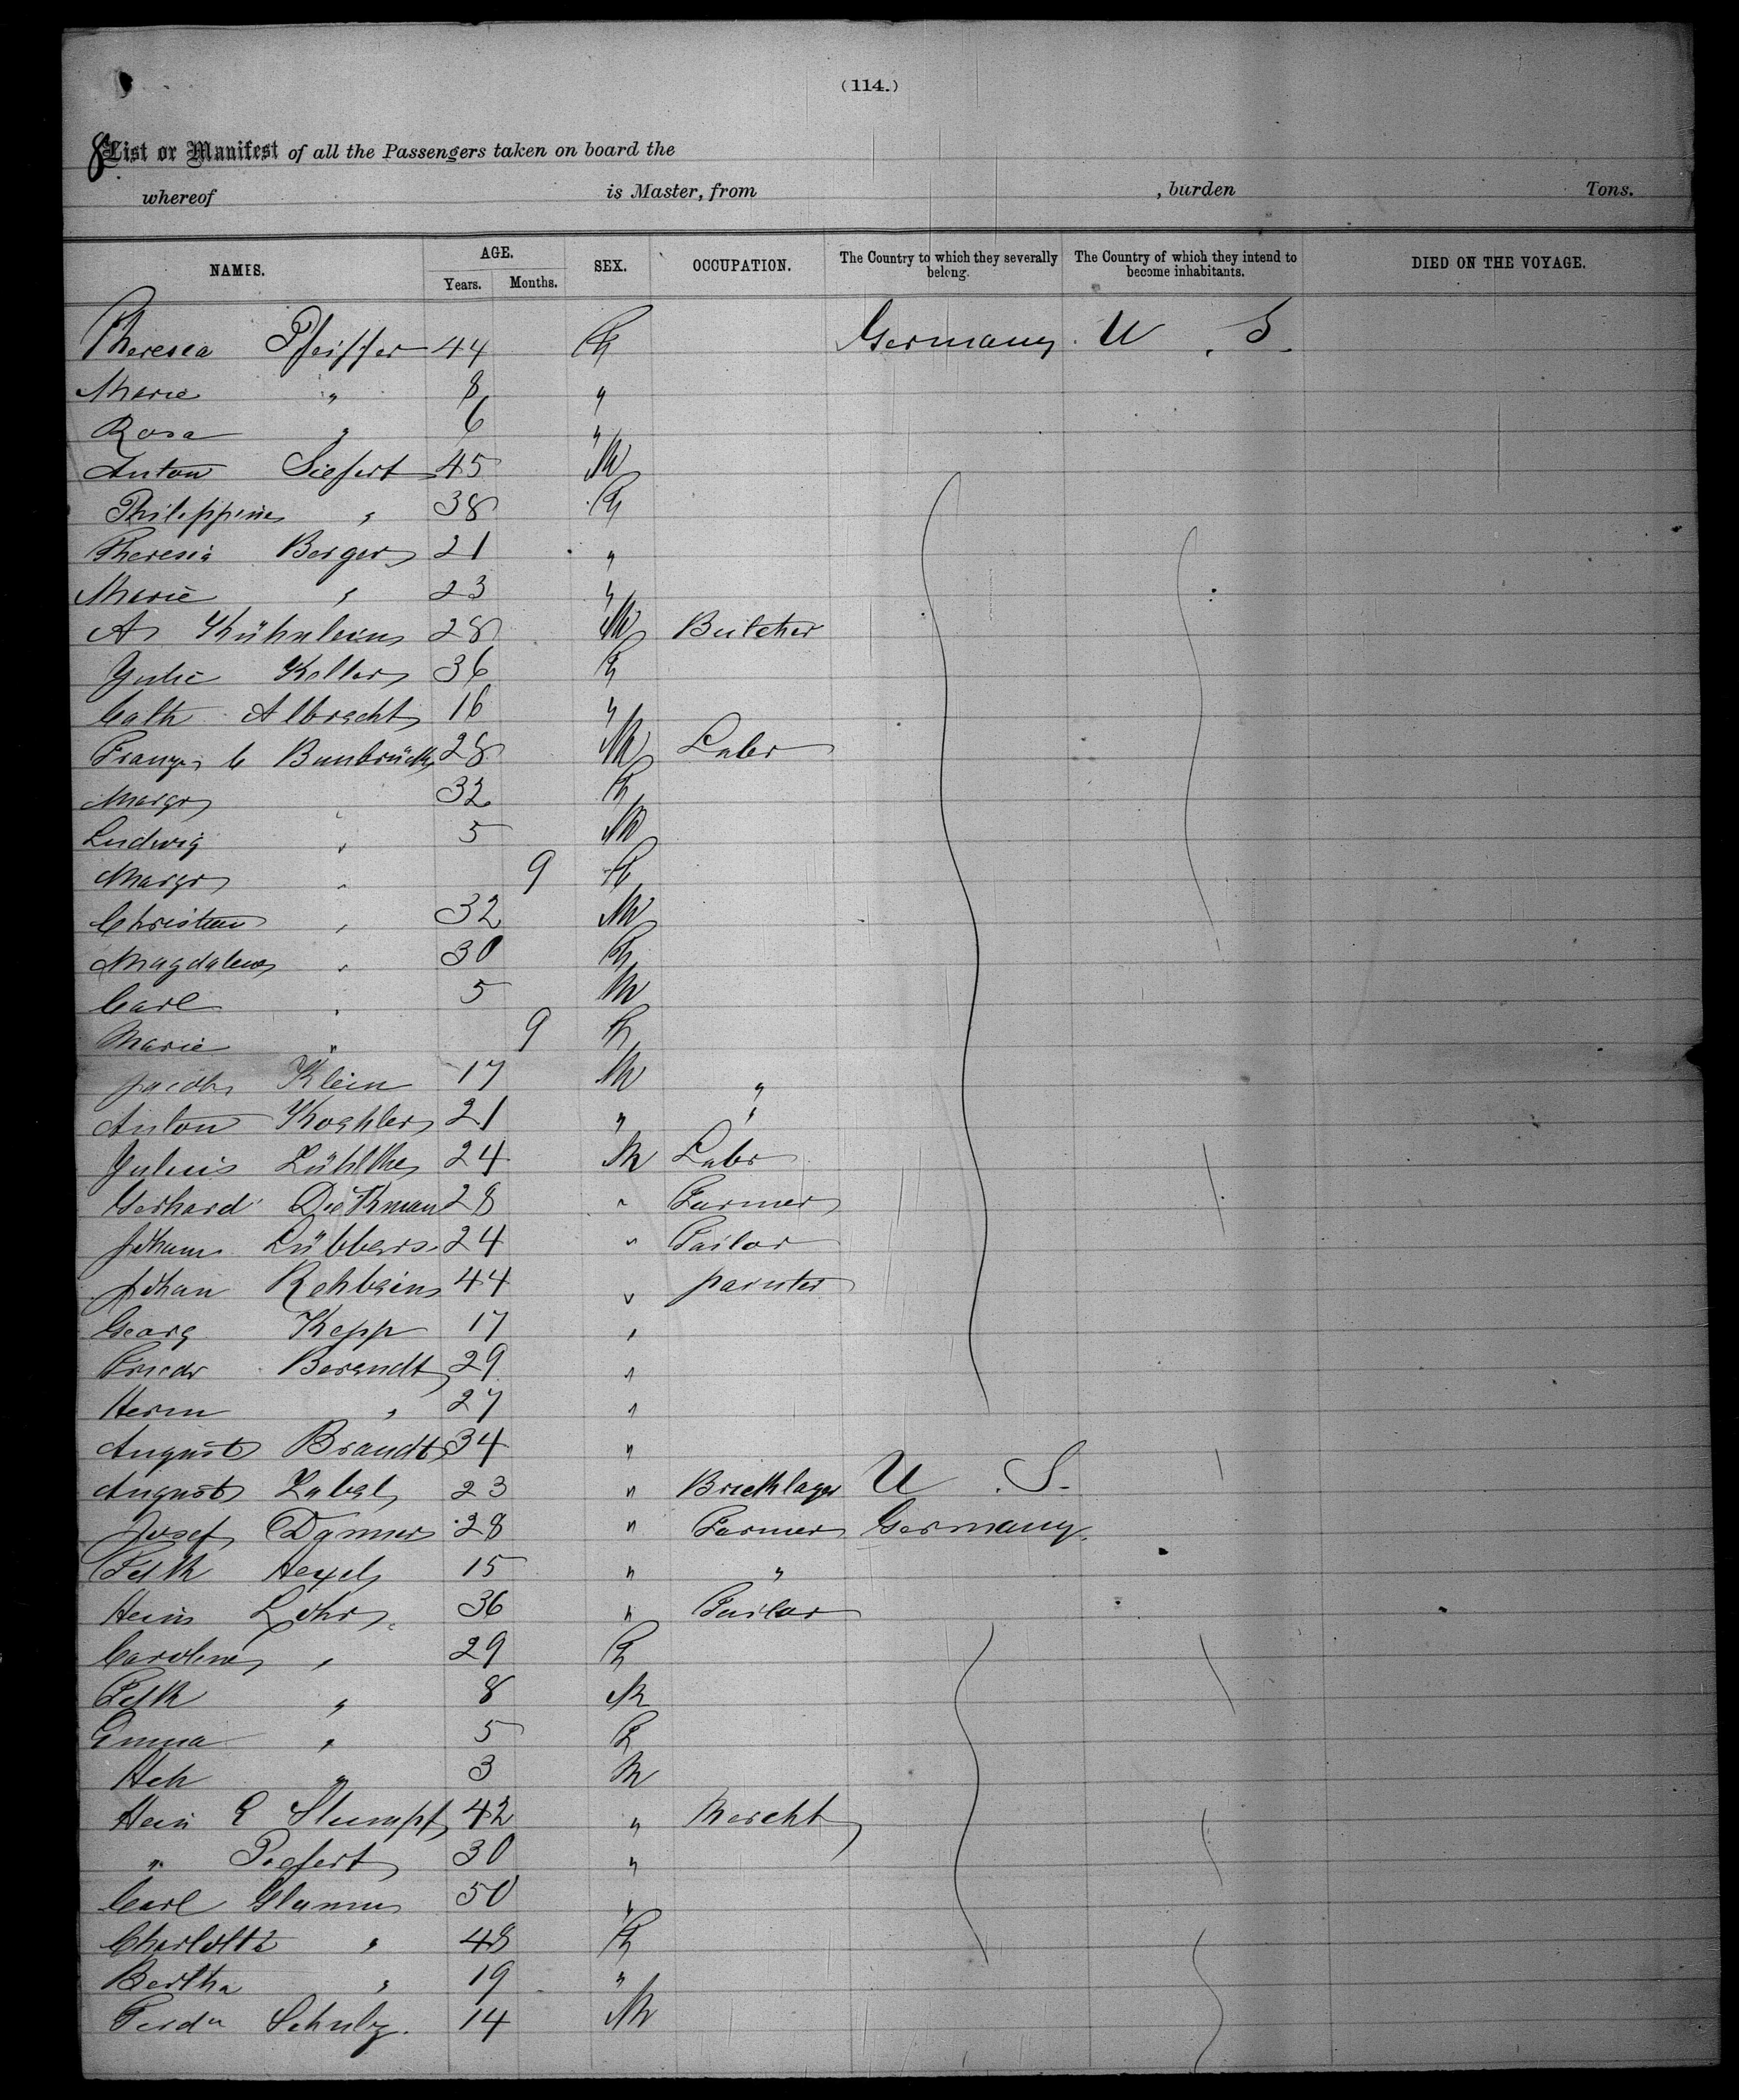 (114.)
8
List or Manifest of all the Passengers taken on board the
whereof is Master, from , burden Tons.
NAMES. AGE. Years. Months. SEX. OCCUPATION. The Country to which they severally belong. The Country of which they intend to become inhabitants. DIED ON THE VOYAGE.
Theresea Pfeiffer 44 F Germany U. S.
Marie " 8 "
Rosa " 6 "
Anton Siefert 45 M
Philippine " 38 F
Theresia Berger 21 "
Marie " 23 "
A Kühnlein 28 M Butcher
Julie Keller 36 F
Cath Albrecht 16 "
Franz C 28 M Labr
Margr " 32 F
Ludwig " 5 M
Margr " 9 F
Christian " 32 M
Magdalena " 30 F
Carl " 5 M
Marie " 9 F
Jacob Klein 17 M "
Anton Koehler 21 " "
Julius 24 M Labr
Gerhard Diekman 28 " Farmer
Johann Lübbers 24 " Tailor
Johan Rehbein 44 " painter
Georg Kepp 17 "
Friedr Berendt 29 "
Herm " 27 "
August Brandt 34 "
August Zabel 23 " Bricklayer U. S.
Josef 28 " Farmer Germany
Fdk Hexel 15 " "
Hein Lohr 36 " Tailor
Caroline " 29 F
Fdk " 8 M
Emma " 5 F
Hch " 3 M
Hein E Stumpf 42 " Mercht
" Piefert 30 "
Carl Glamm 50 "
Charlotte " 48 F
Bertha " 19 "
Ferdn Schulz 14 M